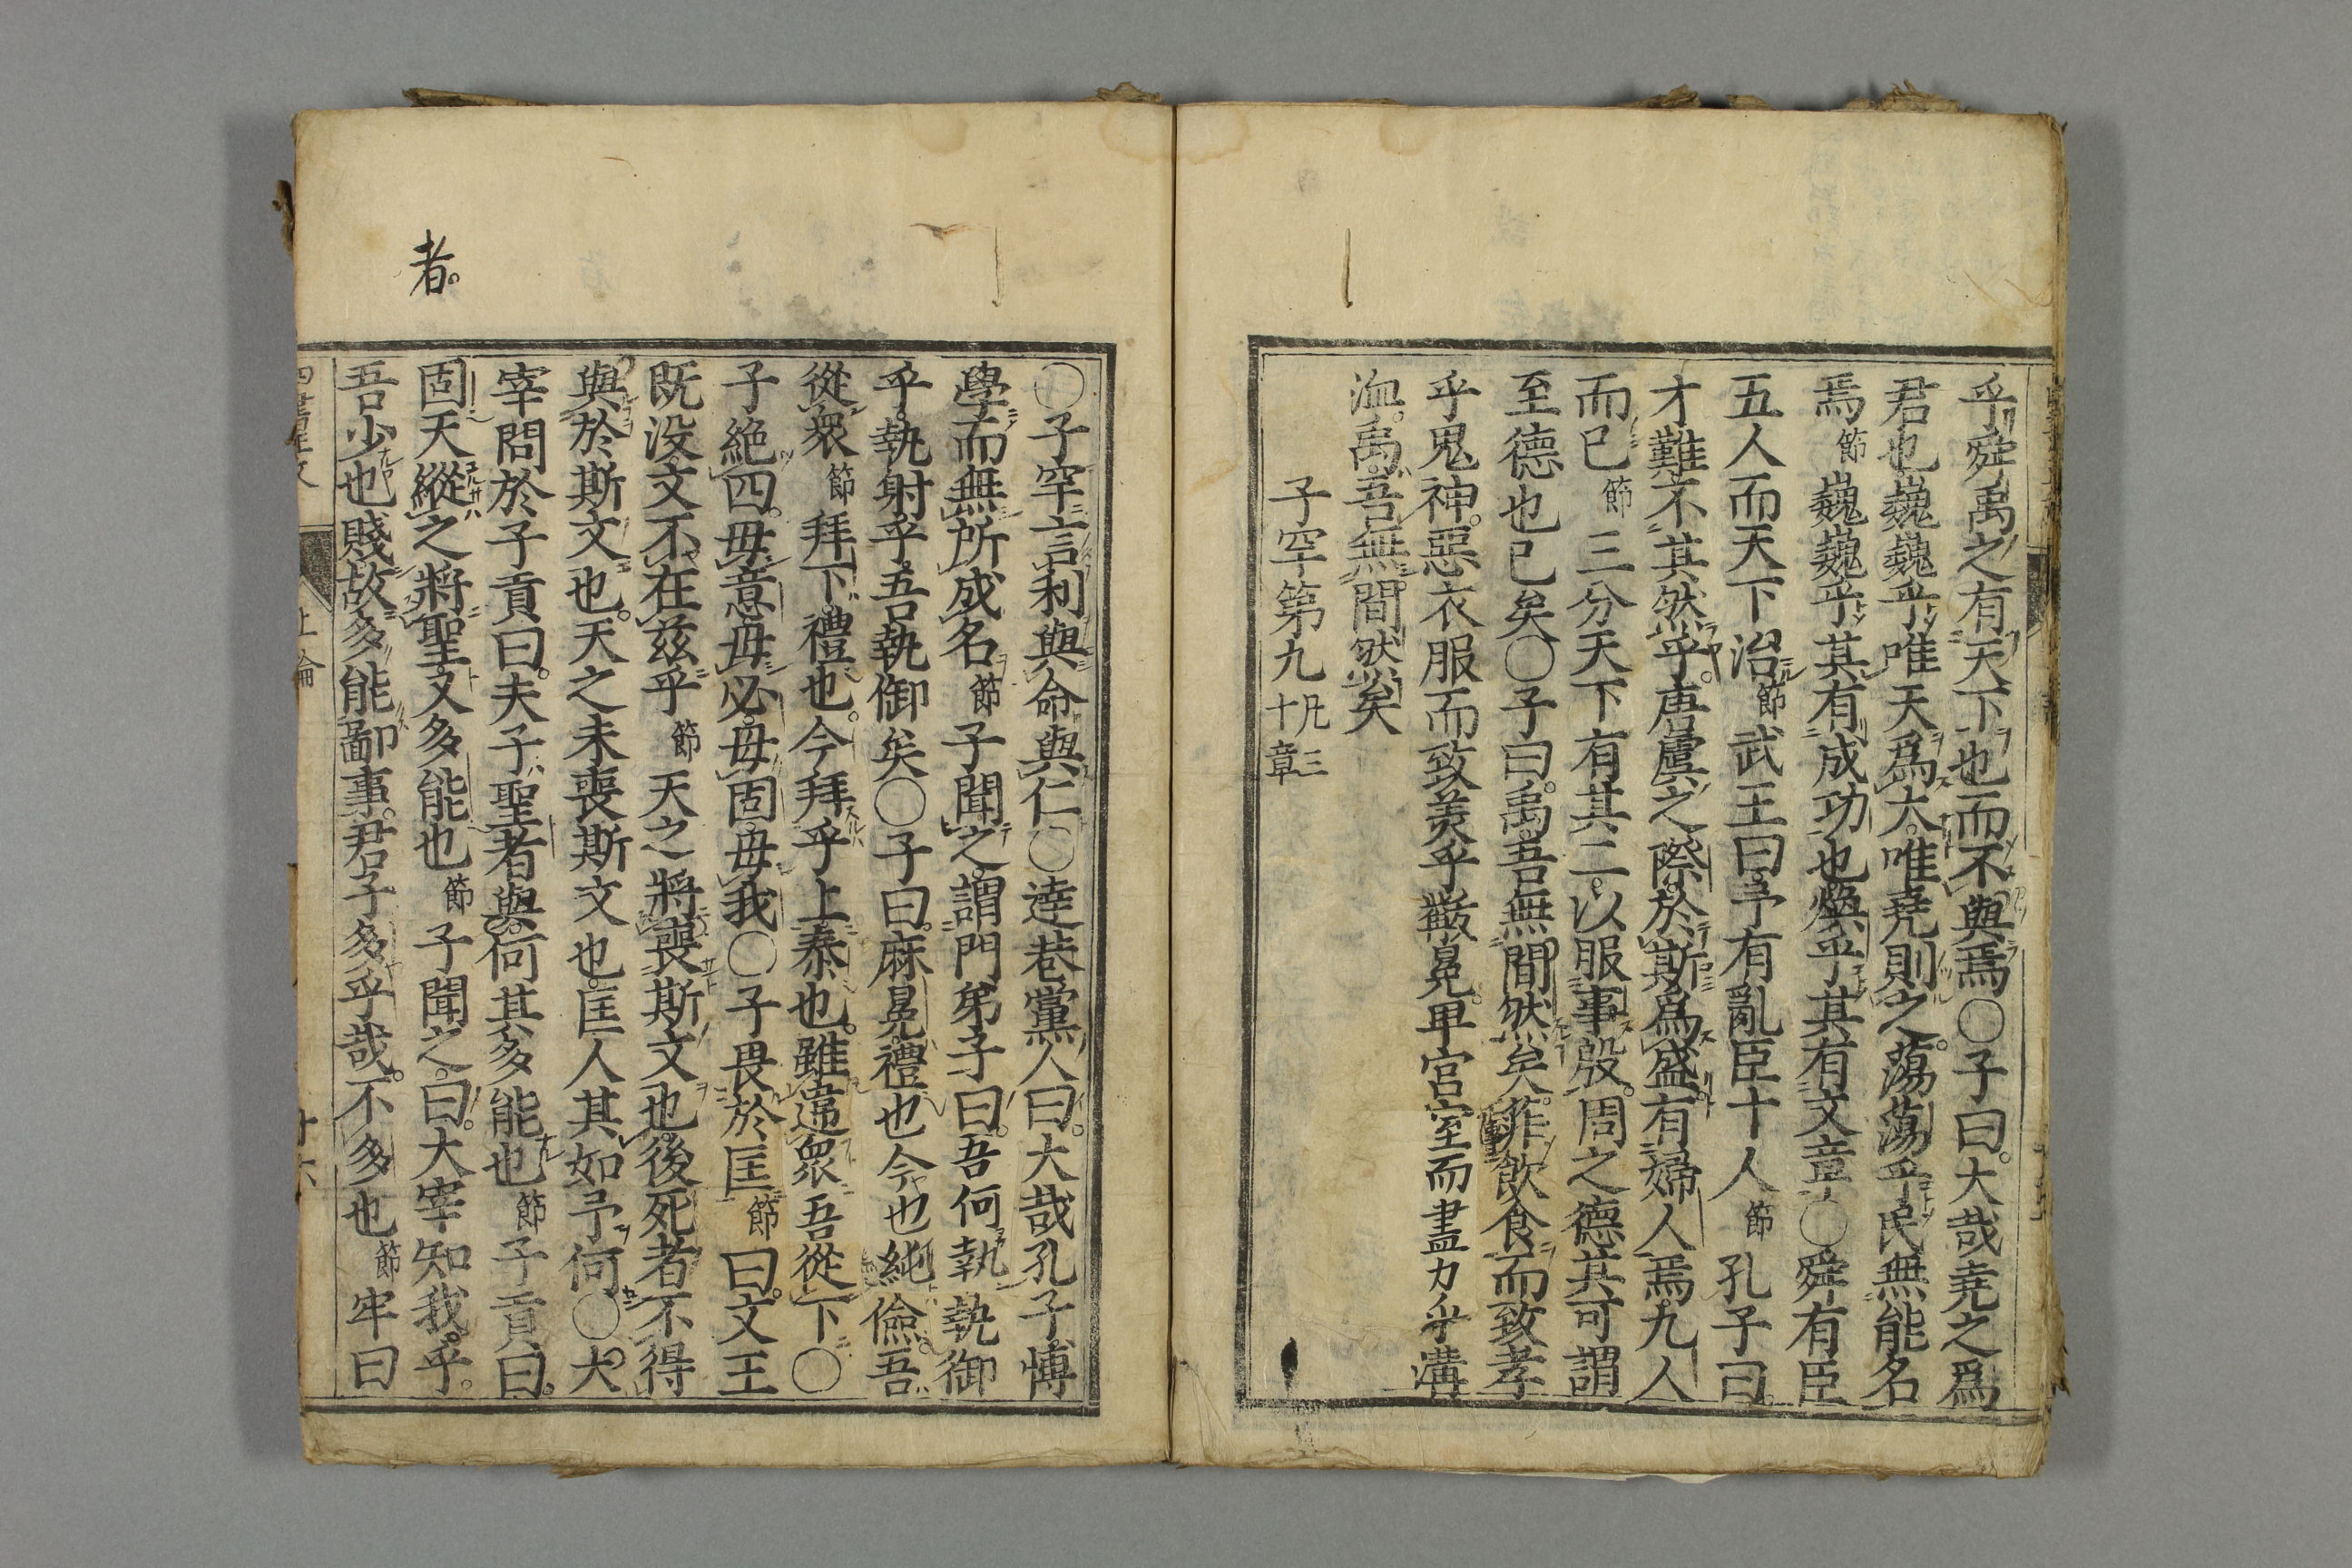 乎舜禹之有天下也而不與焉○子曰大哉堯之爲
君也巍巍乎唯天爲大唯堯則之蕩蕩乎民無能名
焉節巍巍乎其有成功也煥乎其有文章○舜有臣
五人而天下治節武王曰予有亂臣十人節孔子曰
才難不其然乎唐虞之際於斯爲盛有婦人焉九人
而已節三分天下有其二以服事殷周之德其可謂
至德也已矣○子曰禹吾無閒然矣菲飲食而致孝
乎鬼神惡衣服而致美乎黻冕卑宮室而盡力乎溝
洫禹吾無間然矣
子罕第九凡三十章
○子罕言利與命與仁○達巷黨人曰大哉孔子博
學而無所成名節子聞之謂門弟子曰吾何執執御
乎執射乎吾執御矣○子曰麻冕禮也今也純儉吾
從衆節拜下禮也今拜乎上泰也雖違衆吾從下○
子絶四毋意毋必毋固毋我○子畏於匡節曰文王
既没文不在茲乎節天之將喪斯文也後死者不得
與於斯文也天之未喪斯文也匡人其如予何○大
宰問於子貢曰夫子聖者與何其多能也節子貢曰
固天縱之將聖又多能也節子聞之曰大宰知我乎
吾少也賤故多能鄙事君子多乎哉不多也節牢曰
者